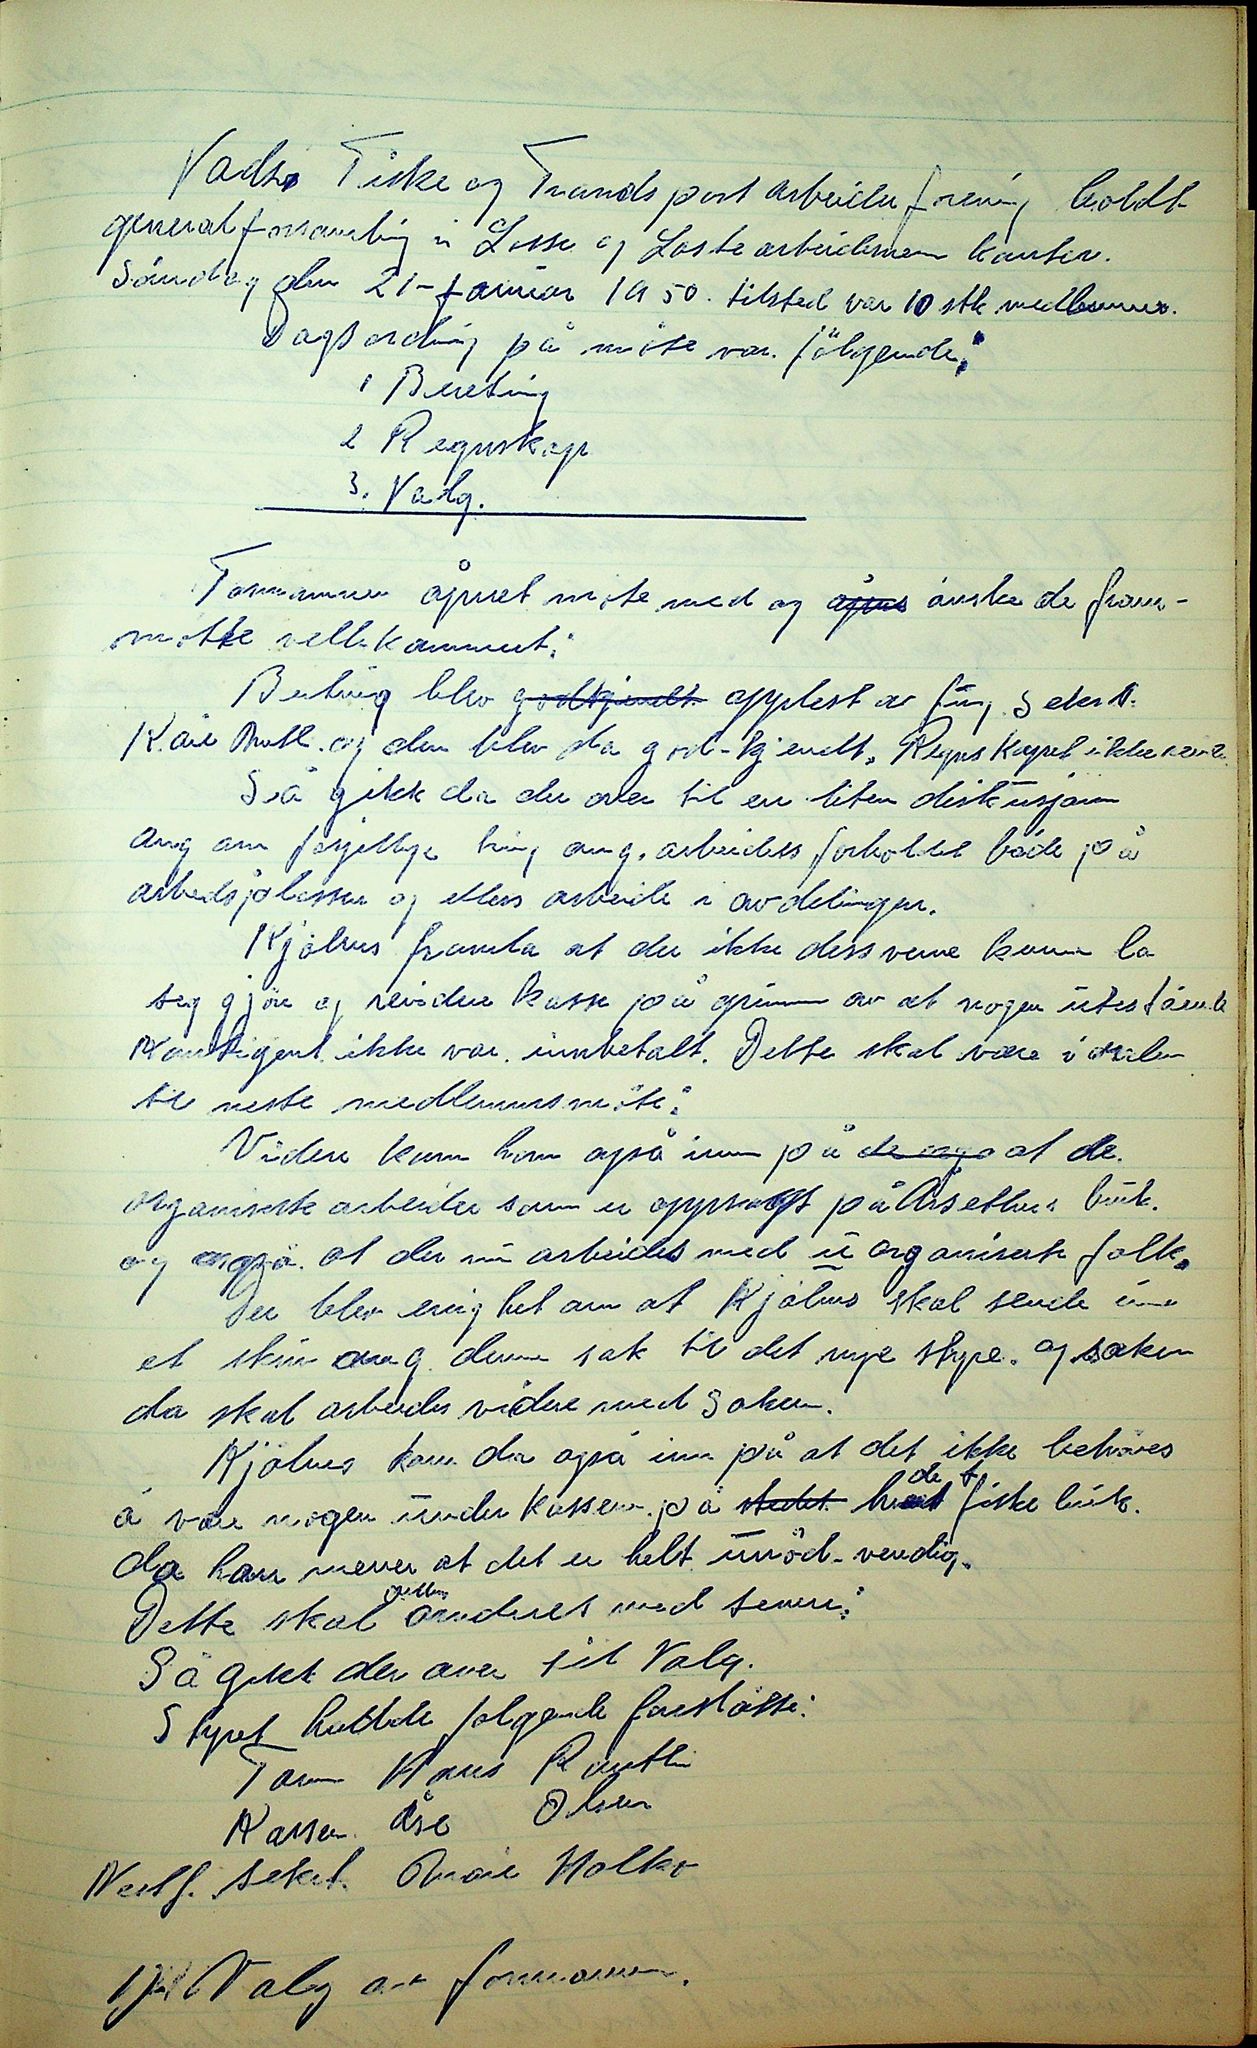 Vadsø Fiske og Transport arbeider forening holdt
generalforsamling i Losse og Laste arbeidernes kontor.
Söndag den 21 - januar 1950. tilsted var 10 stk medlemmer.
Dagsordning på möte var følgende:
1 Beretning
2 Regnskap
3. Valg.
Formannen åpnet möte med og åpne önske de fram-
mötte vellkommet.
Beretning blev godkjendt opplest av fung. Sekret.
Kåre og den blev da god-kjendt. Regnskapet ikke
Så gikk da der over til en liten diskusjonn
ang om forsjellige ting ang. arbeidss forholdet både på
arbeidsplassen og ellers arbeide i avdelingen.
Kjölnes framla at der ikke dessverre kunne la
seg gjöre og revidere kasse på grunn av at nogen utestående
kontigent ikke var innbetalt. Dette skal være i orden
til neste medlemmsmöte.
Videre kom han også inn på at de.
organiserte arbeider som er oppsagt på Arsethers bruk.
og også at der nu arbeides med u organiserte folk.
Der blev enighet om at Kjölnes skal sende inn
et skriv ang. denne sak til det nye styre. og saken
da skal arbeides videre med Saken.
Kjölnes kom da også inn på at det ikke behöves
å være nogen under kassere. på stedet det fiske bruk.
da han mener at det er helt unöd-vendig.
Dette skal ordneses med senere.
Så gikk der over til Valg.
Styret hadde følgende forslått:
Form Hans
Kasser. Åse Olsen
Nestf. sekret. Halko
Valg av formannen.